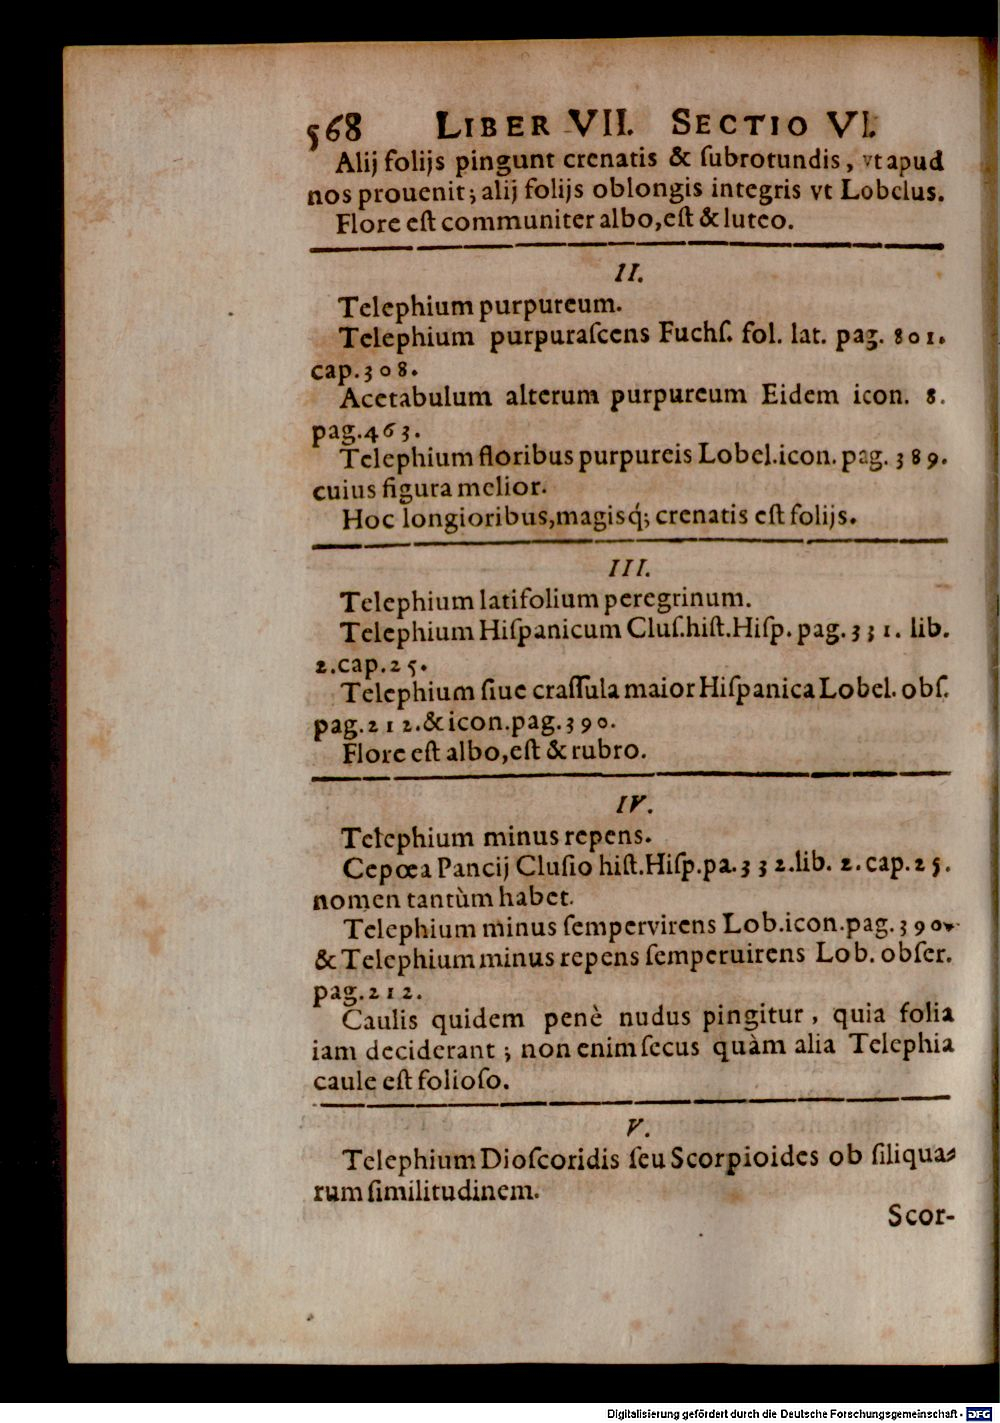 568 LIBER VII. SECTIO VI.
Alij folijs pingunt crenatis & ſubrotundis, vt apud
nos prouenit; alij folijs oblongis integris vt Lobelus.
Flore eſt communiter albo, eſt & luteo.
II.
Telephium purpureum.
Telephium purpuraſcens Fuchſ. fol. lat. pag. 801.
cap. 308.
Acetabulum alterum purpureum Eidem icon. 8.
pag. 463.
Telephium floribus purpureis Lobel. icon. pag. 389.
cuius figura melior.
Hoc longioribus, magisq́; crenatis eſt folijs.
III.
Telephium latifolium peregrinum.
Telephium Hiſpanicum Cluſ. hiſt. Hiſp. pag. 331. lib.
2. cap. 25.
Telephium ſiue craſſula maior Hiſpanica Lobel. obſ.
pag. 212. & icon. pag. 390.
Flore eſt albo, eſt & rubro.
IV.
Telephium minus repens.
Cepœa Pancij Cluſio hiſt. Hiſp. pa. 332. lib. 2. cap. 25.
nomen tantùm habet.
Telephium minus ſempervirens Lob. icon. pag. 390.
& Telephium minus repens ſemperuirens Lob. obſer.
pag. 212.
Caulis quidem penè nudus pingitur, quia folia
iam deciderant; non enim ſecus quàm alia Telephia
caule eſt folioſo.
V.
Telephium Dioſcoridis ſeu Scorpioides ob ſiliqua-
rum ſimilitudinem.
Scor-
Digitalisierung gefördert durch die Deutsche Forschungsgemeinschaft - DFG